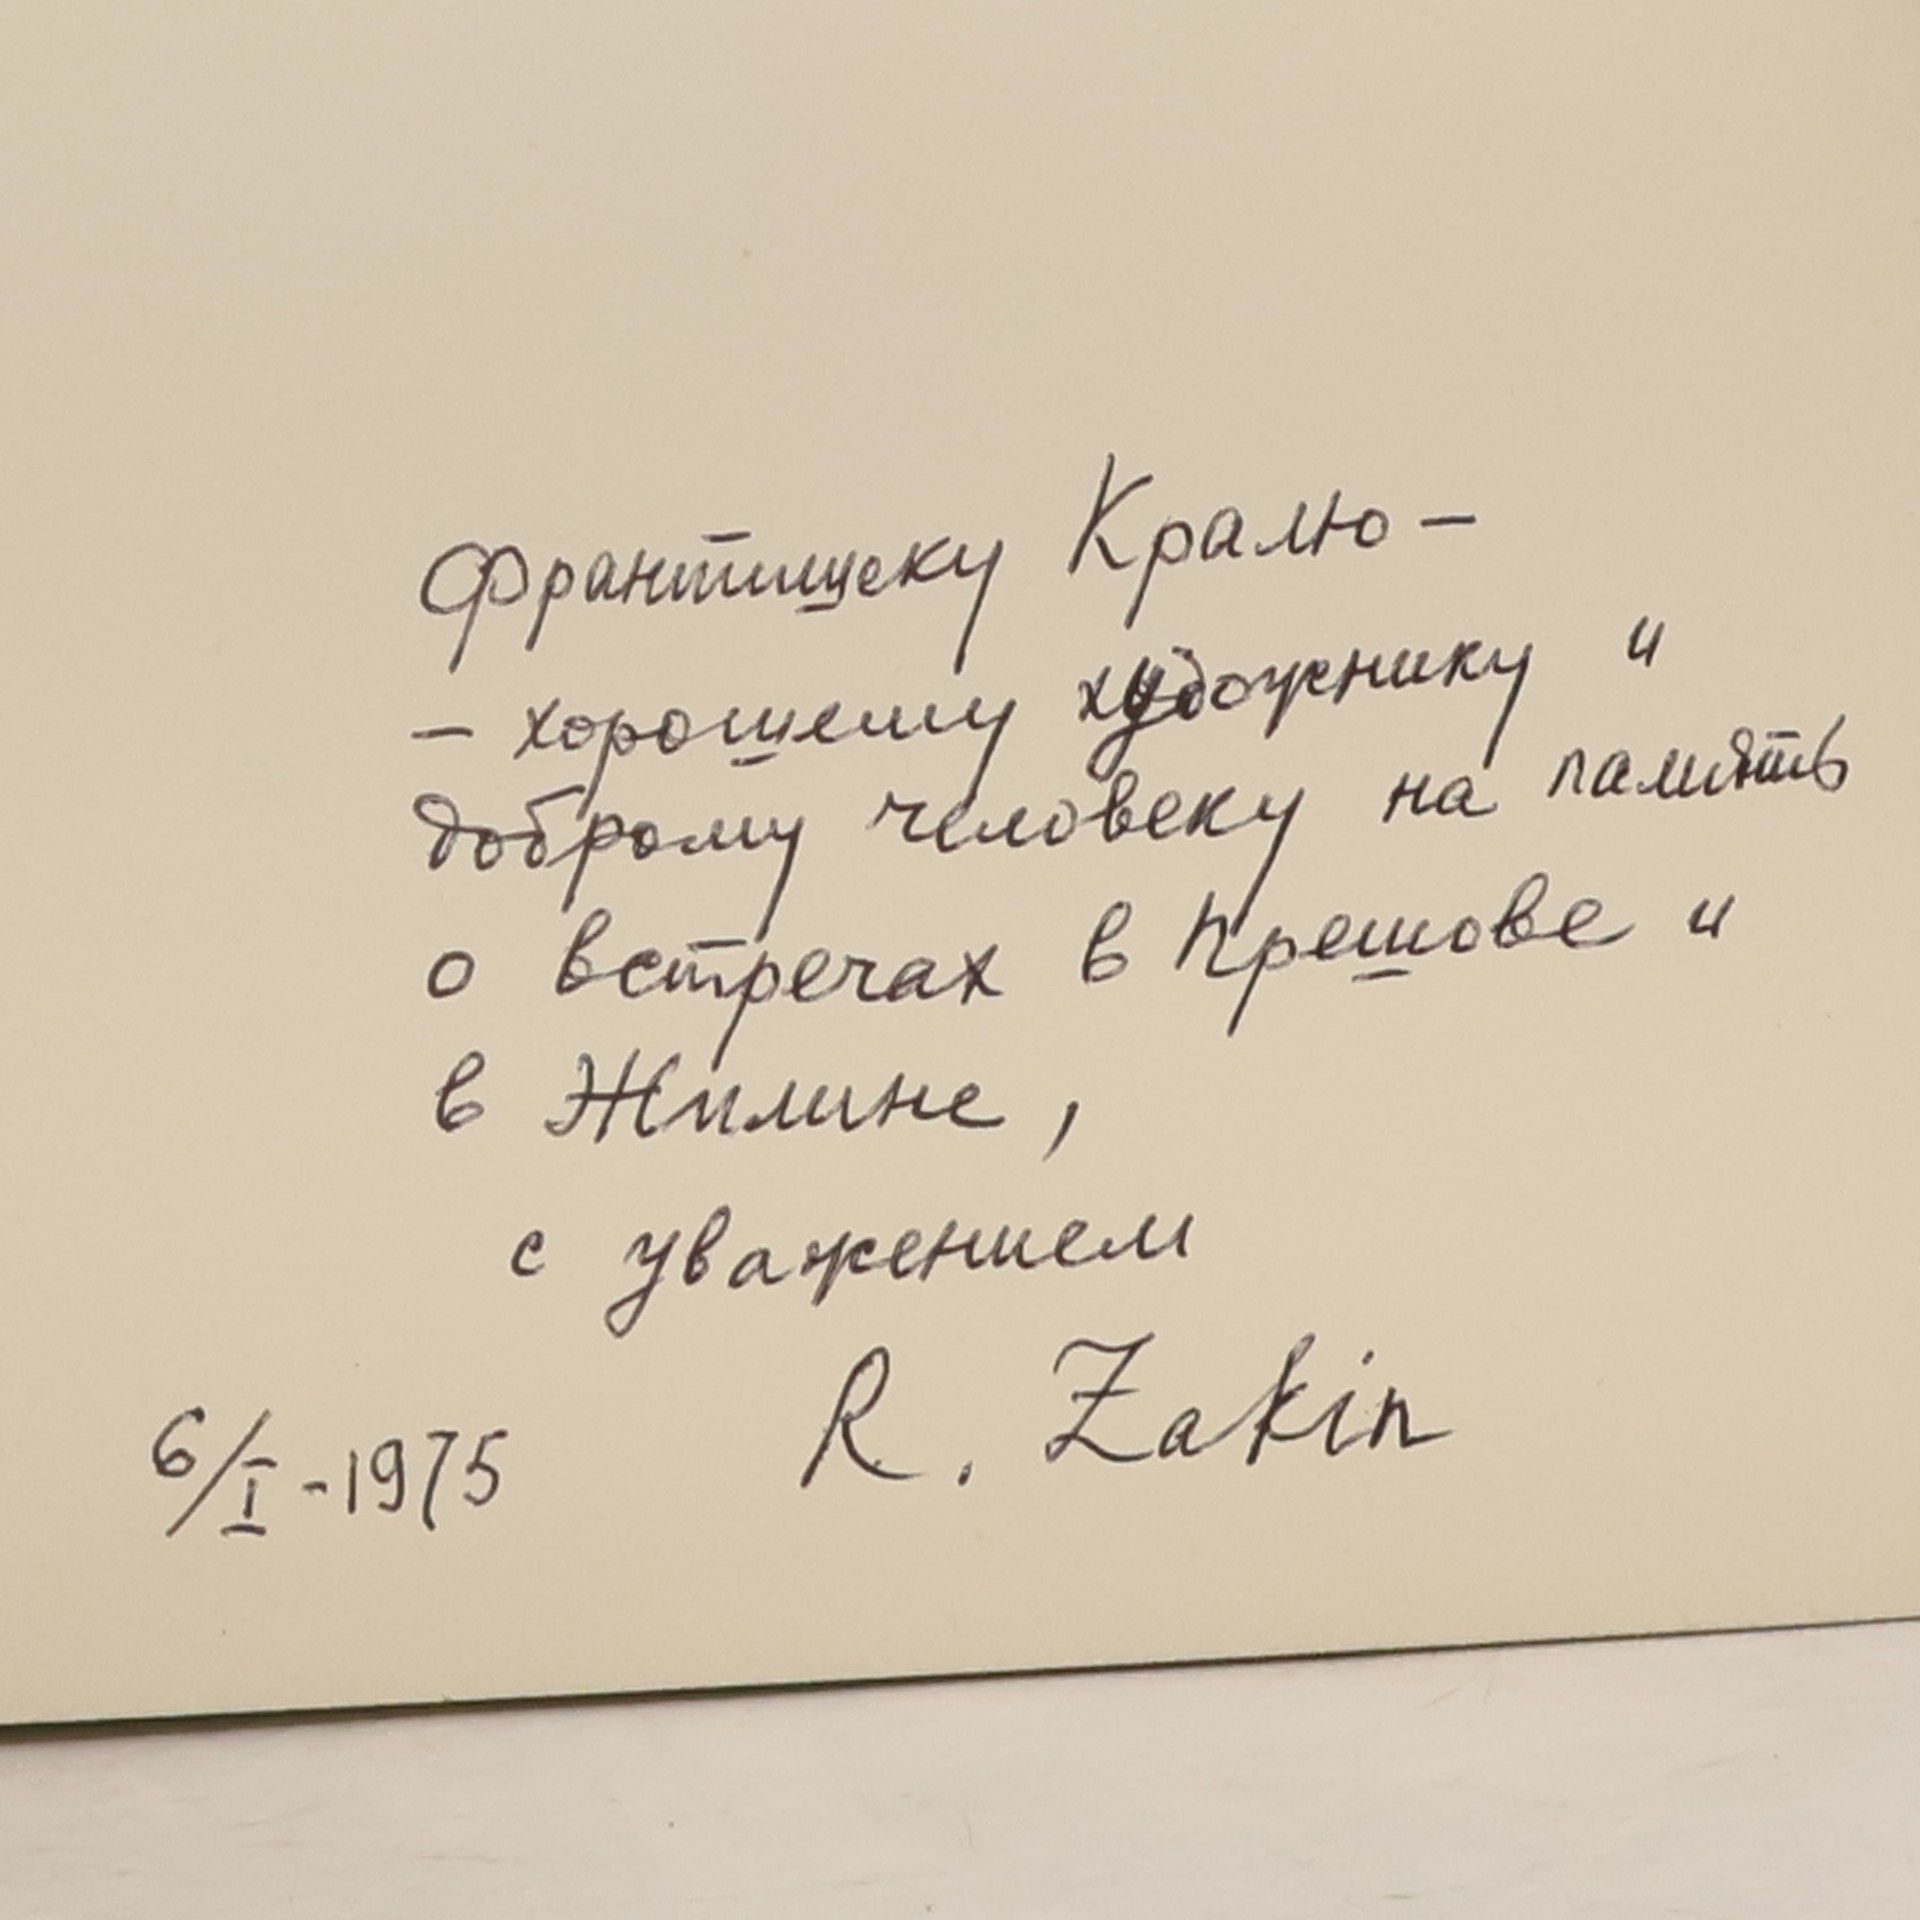 Франтишеку Кралю –
– хорошему художнику и
доброму человеку на память
о встречах в Прешове и
в Жилине,
с уважением
R. Zakin
6/I - 1975